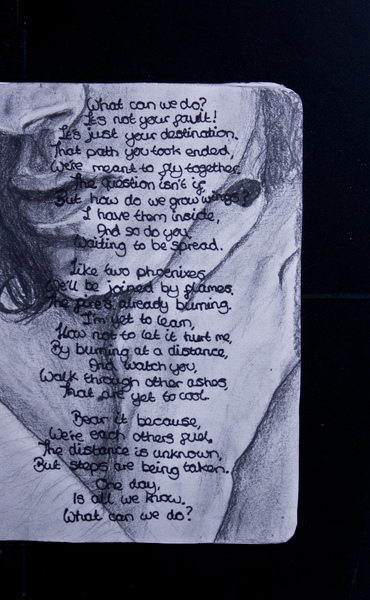 What can we do?
It's not your fault!
It's just your destination.
That path you took ended,
We're meant to fly together.
The question isn't if,
But how do we grow wings?
I have them inside,
And so do you,
Waiting to be spread.
Like two phoenixes,
We'll be joined by flames,
The fire's already burning.
I'm yet to learn,
How not to let it hurt me,
By burning at a distance,
And watch you,
Walk through other ashes,
That are yet to cool.
Bear it because,
We're each others fuel.
The distance is unknown,
But steps are being taken.
One day,
Is all we know.
What can we do?